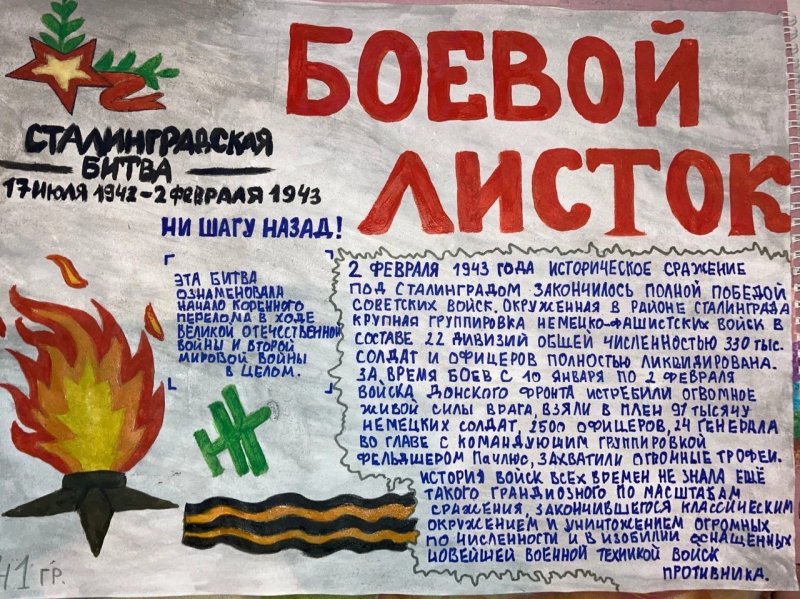 БОЕВОЙ
ЛИСТОК
СТАЛИНГРАДСКАЯ
БИТВА
17 ИЮЛЯ 1942 - 2 ФЕВРАЛЯ 1943
НИ ШАГУ НАЗАД!
ЭТА БИТВА
ОЗНАМЕНОВАЛА
НАЧАЛО КОРЕННОГО
ПЕРЕЛОМА В ХОДЕ
ВЕЛИКОЙ ОТЕЧЕССТВЕННОЙ
ВОЙНЫ И ВТОРОЙ
МИРОВОЙ ВОЙНЫ
В ЦЕЛОМ.
2 ФЕВРАЛЯ 1943 ГОДА ИСТОРИЧЕСКОЕ СРАЖЕНИЕ
ПОД СТАЛИНГРАДОМ ЗАКОНЧИЛОСЬ ПОЛНОЙ ПОБЕДОЙ
СОВЕТСКИХ ВОЙСК. ОКРУЖЕННАЯ В РАЙОНЕ СТАЛИНГРАДА
КРУПНАЯ ГРУППИРОВКА НЕМЕЦКО-ФАШИСТСКИХ ВОЙСК В
СОСТАВЕ 22 ДИВИЗИЙ ОБЩЕЙ ЧИСЛЕННОСТЬЮ 330 ТЫС.
СОЛДАТ И ОФИЦЕРОВ ПОЛНОСТЬЮ ЛИКВИДИРОВАНА.
ЗА ВРЕМЯ БОЕВ С 10 ЯНВАРЯ ПО 2 ФЕВРАЛЯ
ВОЙСКА ДОНСКОГО ФРОНТА ИСТРЕБИЛИ ОГРОМНОЕ
ЖИВОЙ СИЛЫ ВРАГА, ВЗЯЛИ В ПЛЕН 91 ТЫСЯЧУ
НЕМЕЦКИХ СОЛДАТ, 2500 ОФИЦЕРОВ, 24 ГЕНЕРАЛА
ВО ГЛАВЕ С КОМАНДУЮЩИМ ГРУППИРОВКОЙ
ФЕЛЬДШЕРОМ ПАУЛЮС, ЗАХВАТИЛИ ОГРОМНЫЕ ТРОФЕИ.
ИСТОРИЯ ВОЙСК ВСЕХ ВРЕМЕН НЕ ЗНАЛА ЕЩЁ
ТАКОГО ГРАНДИОЗНОГО ПО МАСШТАБАМ
СРАЖЕНИЯ, ЗАКОНЧИВШЕГОСЯ КЛАССИЧЕСКИМ
ОКРУЖЕНИЕМ И УНИЧТОЖЕНИЕМ ОГРОМНЫХ
ПО ЧИСЛЕННОСТИ И В ИЗОБИЛИИ ОСНАЩЕННЫХ
НОВЕЙШЕЙ ВОЕННОЙ ТЕХНИКОЙ ВОЙСК
ПРОТИВНИКА.
41 ГР.